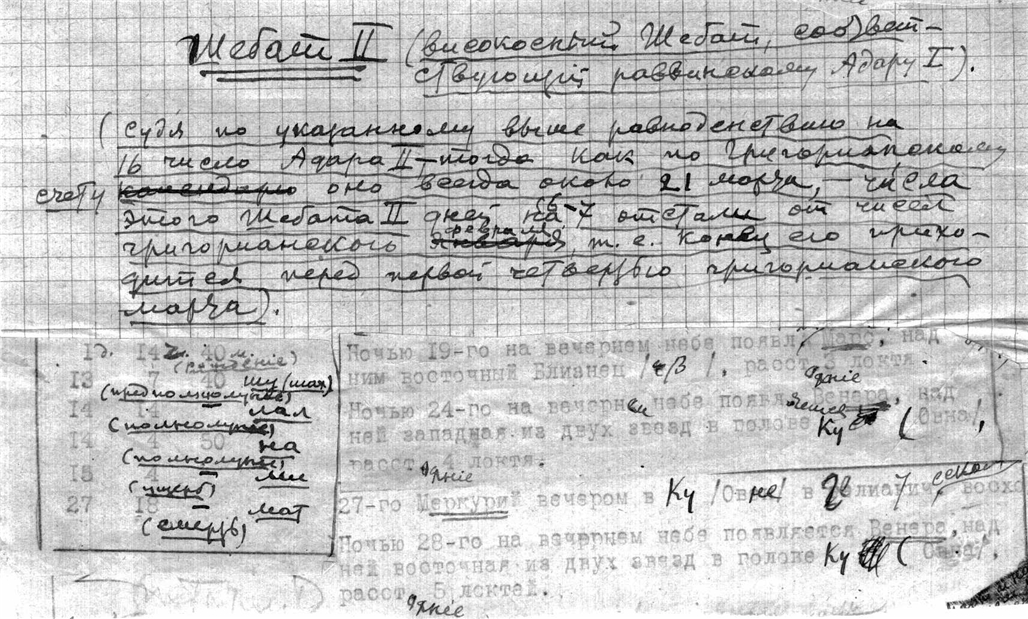 Шебат II (високосный Шебат, соответ-
ствующий раввинскому Адару I).
(судя по указанному выше равноденствию на
16 число Адара II — тогда как по Григорианскому
счету календарю оно всегда около 21 марта, — числа
этого Шебата II дней на 6-7 отстали от чисел
григорианского января февраля, т. е. конец его прихо-
дится перед первой четвертью григорианского
марта).
14 40 м.
13 7 40 шу (шах)
(предполнолуние)
14 14 лал
(полнолуние)
14 4 50 на
(полнолуние)
15 4 ми
(ущерб)
27 18 мат
(смерть)
Ночью 19-го на вечернем небе появл. Марс, над
ним восточный Близнец /β/, расст. 3 локтя
Ночью 24-го на вечернем небе появл. Венера, над
ней западная из двух звезд в голове Ку (Овна/,
расст. 4 локтя.
27-го Меркурий вечером в Ку /Овне/ в
Ночью 28-го на вечернем небе появляется Венера, над
ней восточная из двух звезд в голове Ку (Овна/,
расст. 5 локтей.